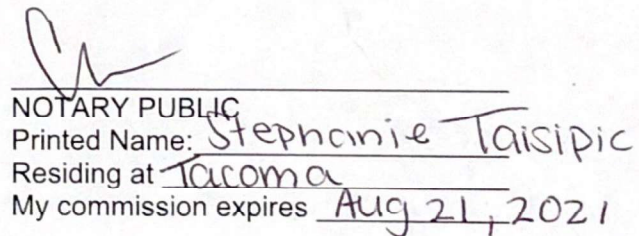 NOTARY PUBLIC
Printed Name: Stephanie Taisipic
Residing at Tacoma
My commission expires Aug 21, 2021